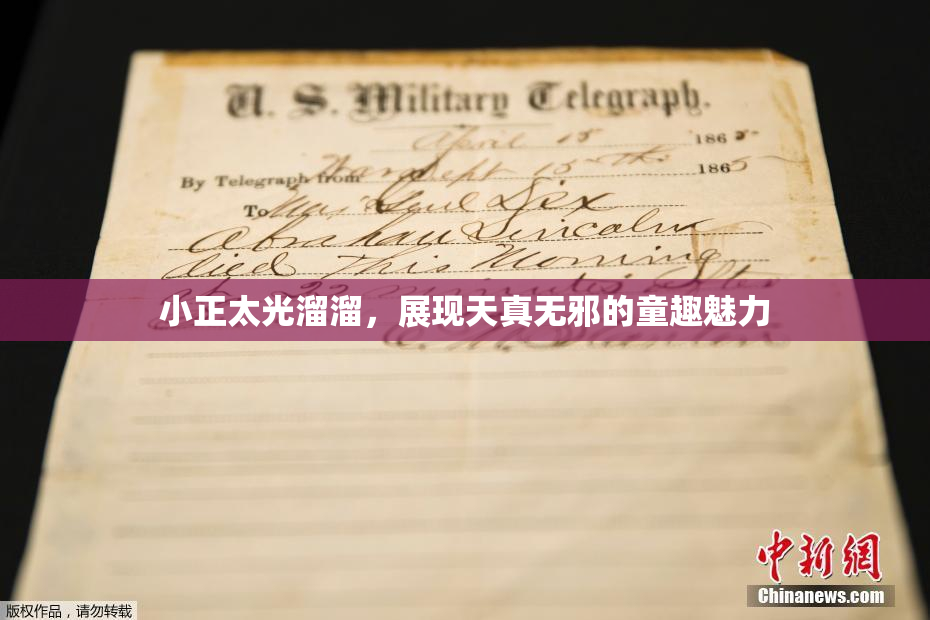 U. S. Military Telegraph.
April 15 1865
By Telegraph from War Dept 15th 1865
To Maj Genl Dix
Abraham Lincoln
died This Morning
at 22 minutes after
小正太光溜溜，展现天真无邪的童趣魅力
E. M. Stanton
中新网
Chinanews.com
版权作品，请勿转载